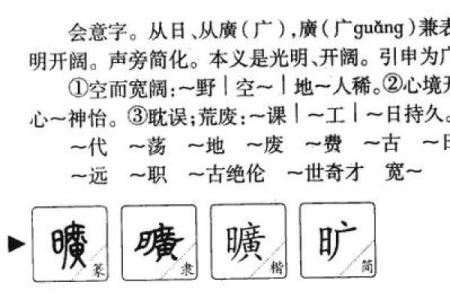 会意字。从日、从廣(广),廣(广guǎng)兼表
明开阔。声旁简化。本义是光明、开阔。引申为广
①空而宽阔:~野|空~|地~人稀。②心境开
心~神怡。③耽误;荒废:~课|~工|~日持久。
~代 ~荡 ~地 ~废 ~费 ~古 ~日
~远 ~职 ~古绝伦 ~世奇才 宽~
曠 篆 曠 隶 曠 楷 旷 简